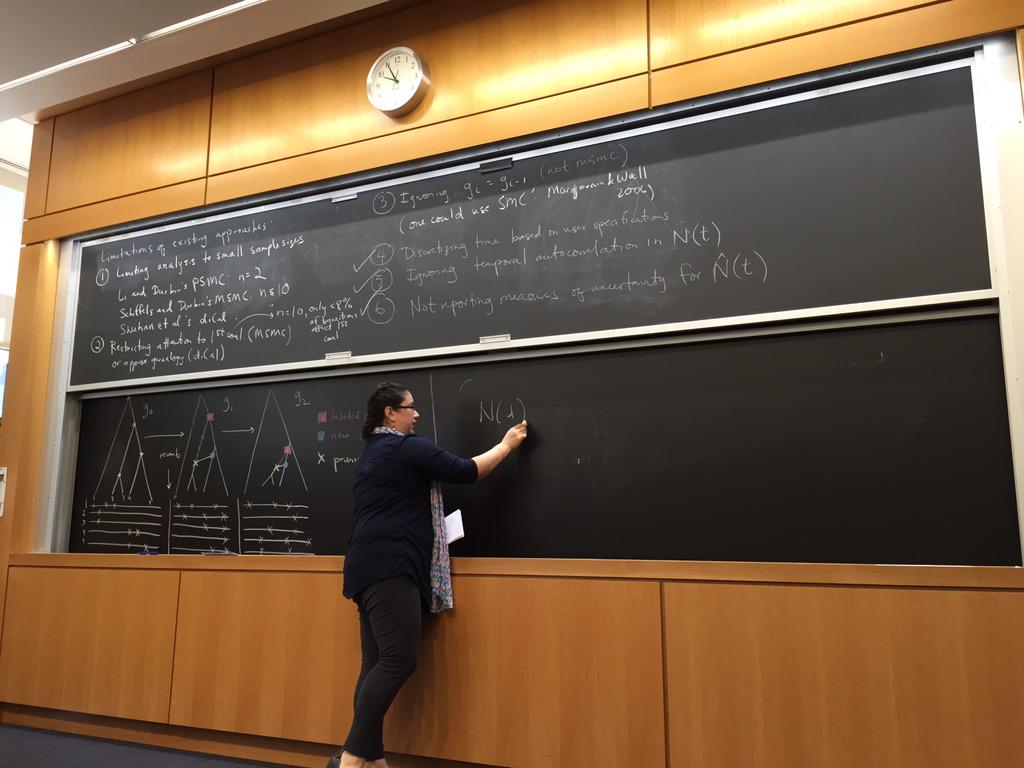 Limitations of existing approaches:
① Limiting analysis to small sample sizes
Li and Durbin's PSMC n=2
Schiffels and Durbin's MSMC n≤10
Sheehan et al.'s diCal
n=10, only <8%
of transitions
affect 1st
coal
② Restricting attention to 1st coal (MSMC)
or approx genealogy (diCal)
③ Ignoring gᵢ = gᵢ₋₁ (not msmc)
(one could use SMC': Marjoram & Wall
2006)
✓ ④ Discretizing time based on user specifications
✓ ⑤ Ignoring temporal autocorrelation in N(t)
✓ ⑥ Not reporting measures of uncertainty for N̂(t)
g₀ g₁ g₂
deleted
new
recomb
N(t)